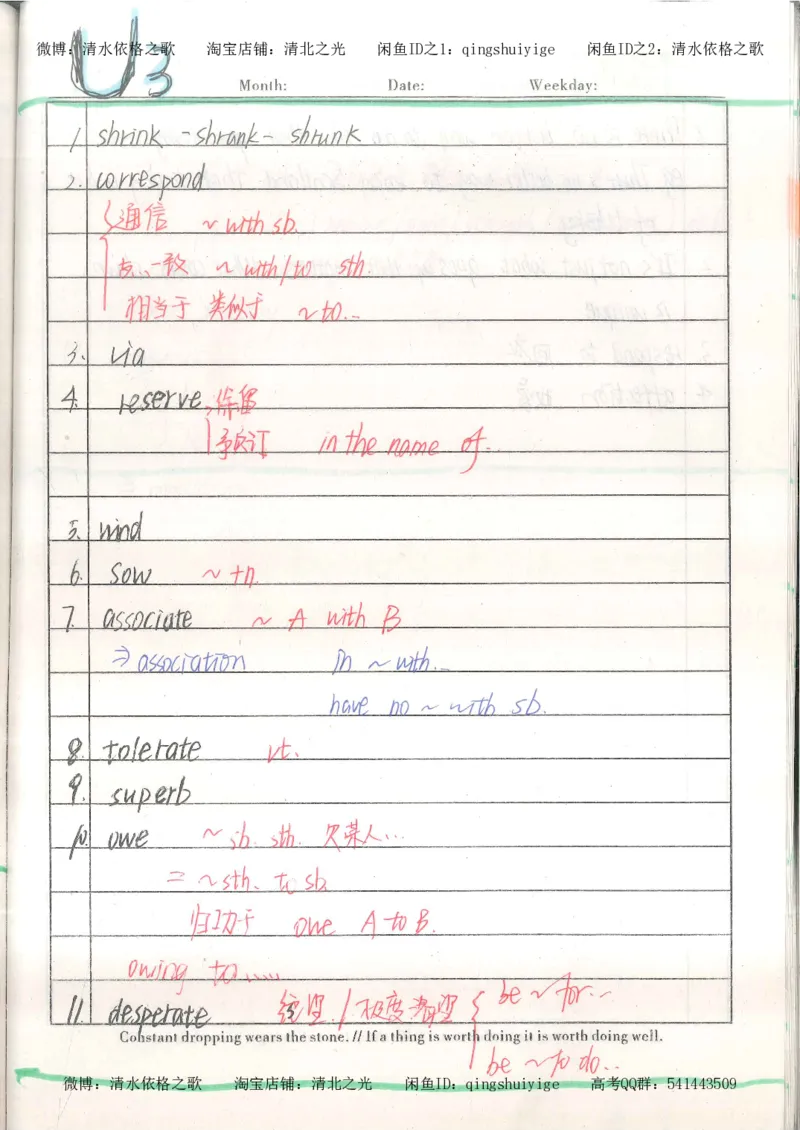 微博：清水依格之歌 淘宝店铺：清北之光 闲鱼ID之1：qingshuiyige 闲鱼ID之2：清水依格之歌
U3
Month: Date: Weekday:
1 shrink - shrank - shrunk
2. correspond
通信 ~ with sb.
一致 ~ with/to sth
相当于 类似于 ~ to...
3. via
4. reserve 保留
预订 in the name of...
5. wind
6. sow ~ +n.
7. associate ~ A with B
⇒ association in ~ with...
have no ~ with sb.
8. tolerate vt.
9. superb
10. owe ~ sb. sth. 欠某人...
= ~ sth. to sb.
归功于 owe A to B.
owing to......
11. desperate 绝望 / 极度渴望 be ~ for...
Constant dropping wears the stone. // If a thing is worth doing it is worth doing well.
be ~ to do...
微博：清水依格之歌 淘宝店铺：清北之光 闲鱼ID：qingshuiyige 高考QQ群：541443509